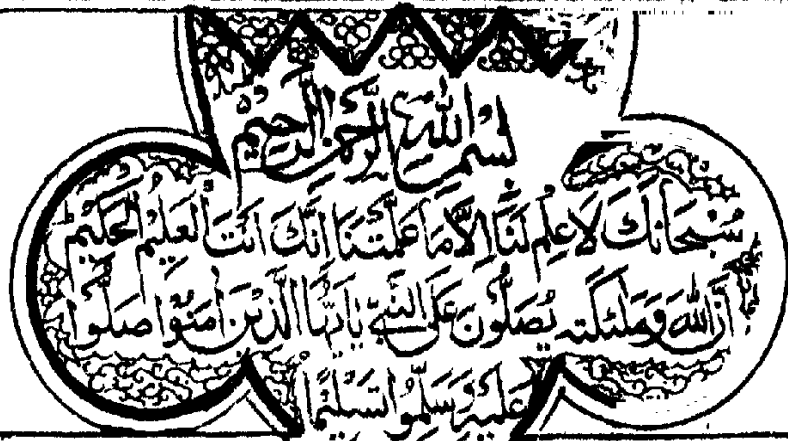 بِسْمِ اللّٰهِ الرَّحْمٰنِ الرَّحِيْمِ
سُبْحَانَكَ لَا عِلْمَ لَنَا اِلَّا مَا عَلَّمْتَنَا اِنَّكَ اَنْتَ الْعَلِيْمُ الْحَكِيْمُ
اِنَّ اللّٰهَ وَمَلٰئِكَتَهٗ يُصَلُّوْنَ عَلَى النَّبِيِّ يٰاَيُّهَا الَّذِيْنَ اٰمَنُوْا صَلُّوْا
عَلَيْهِ وَسَلِّمُوْا تَسْلِيْمًا